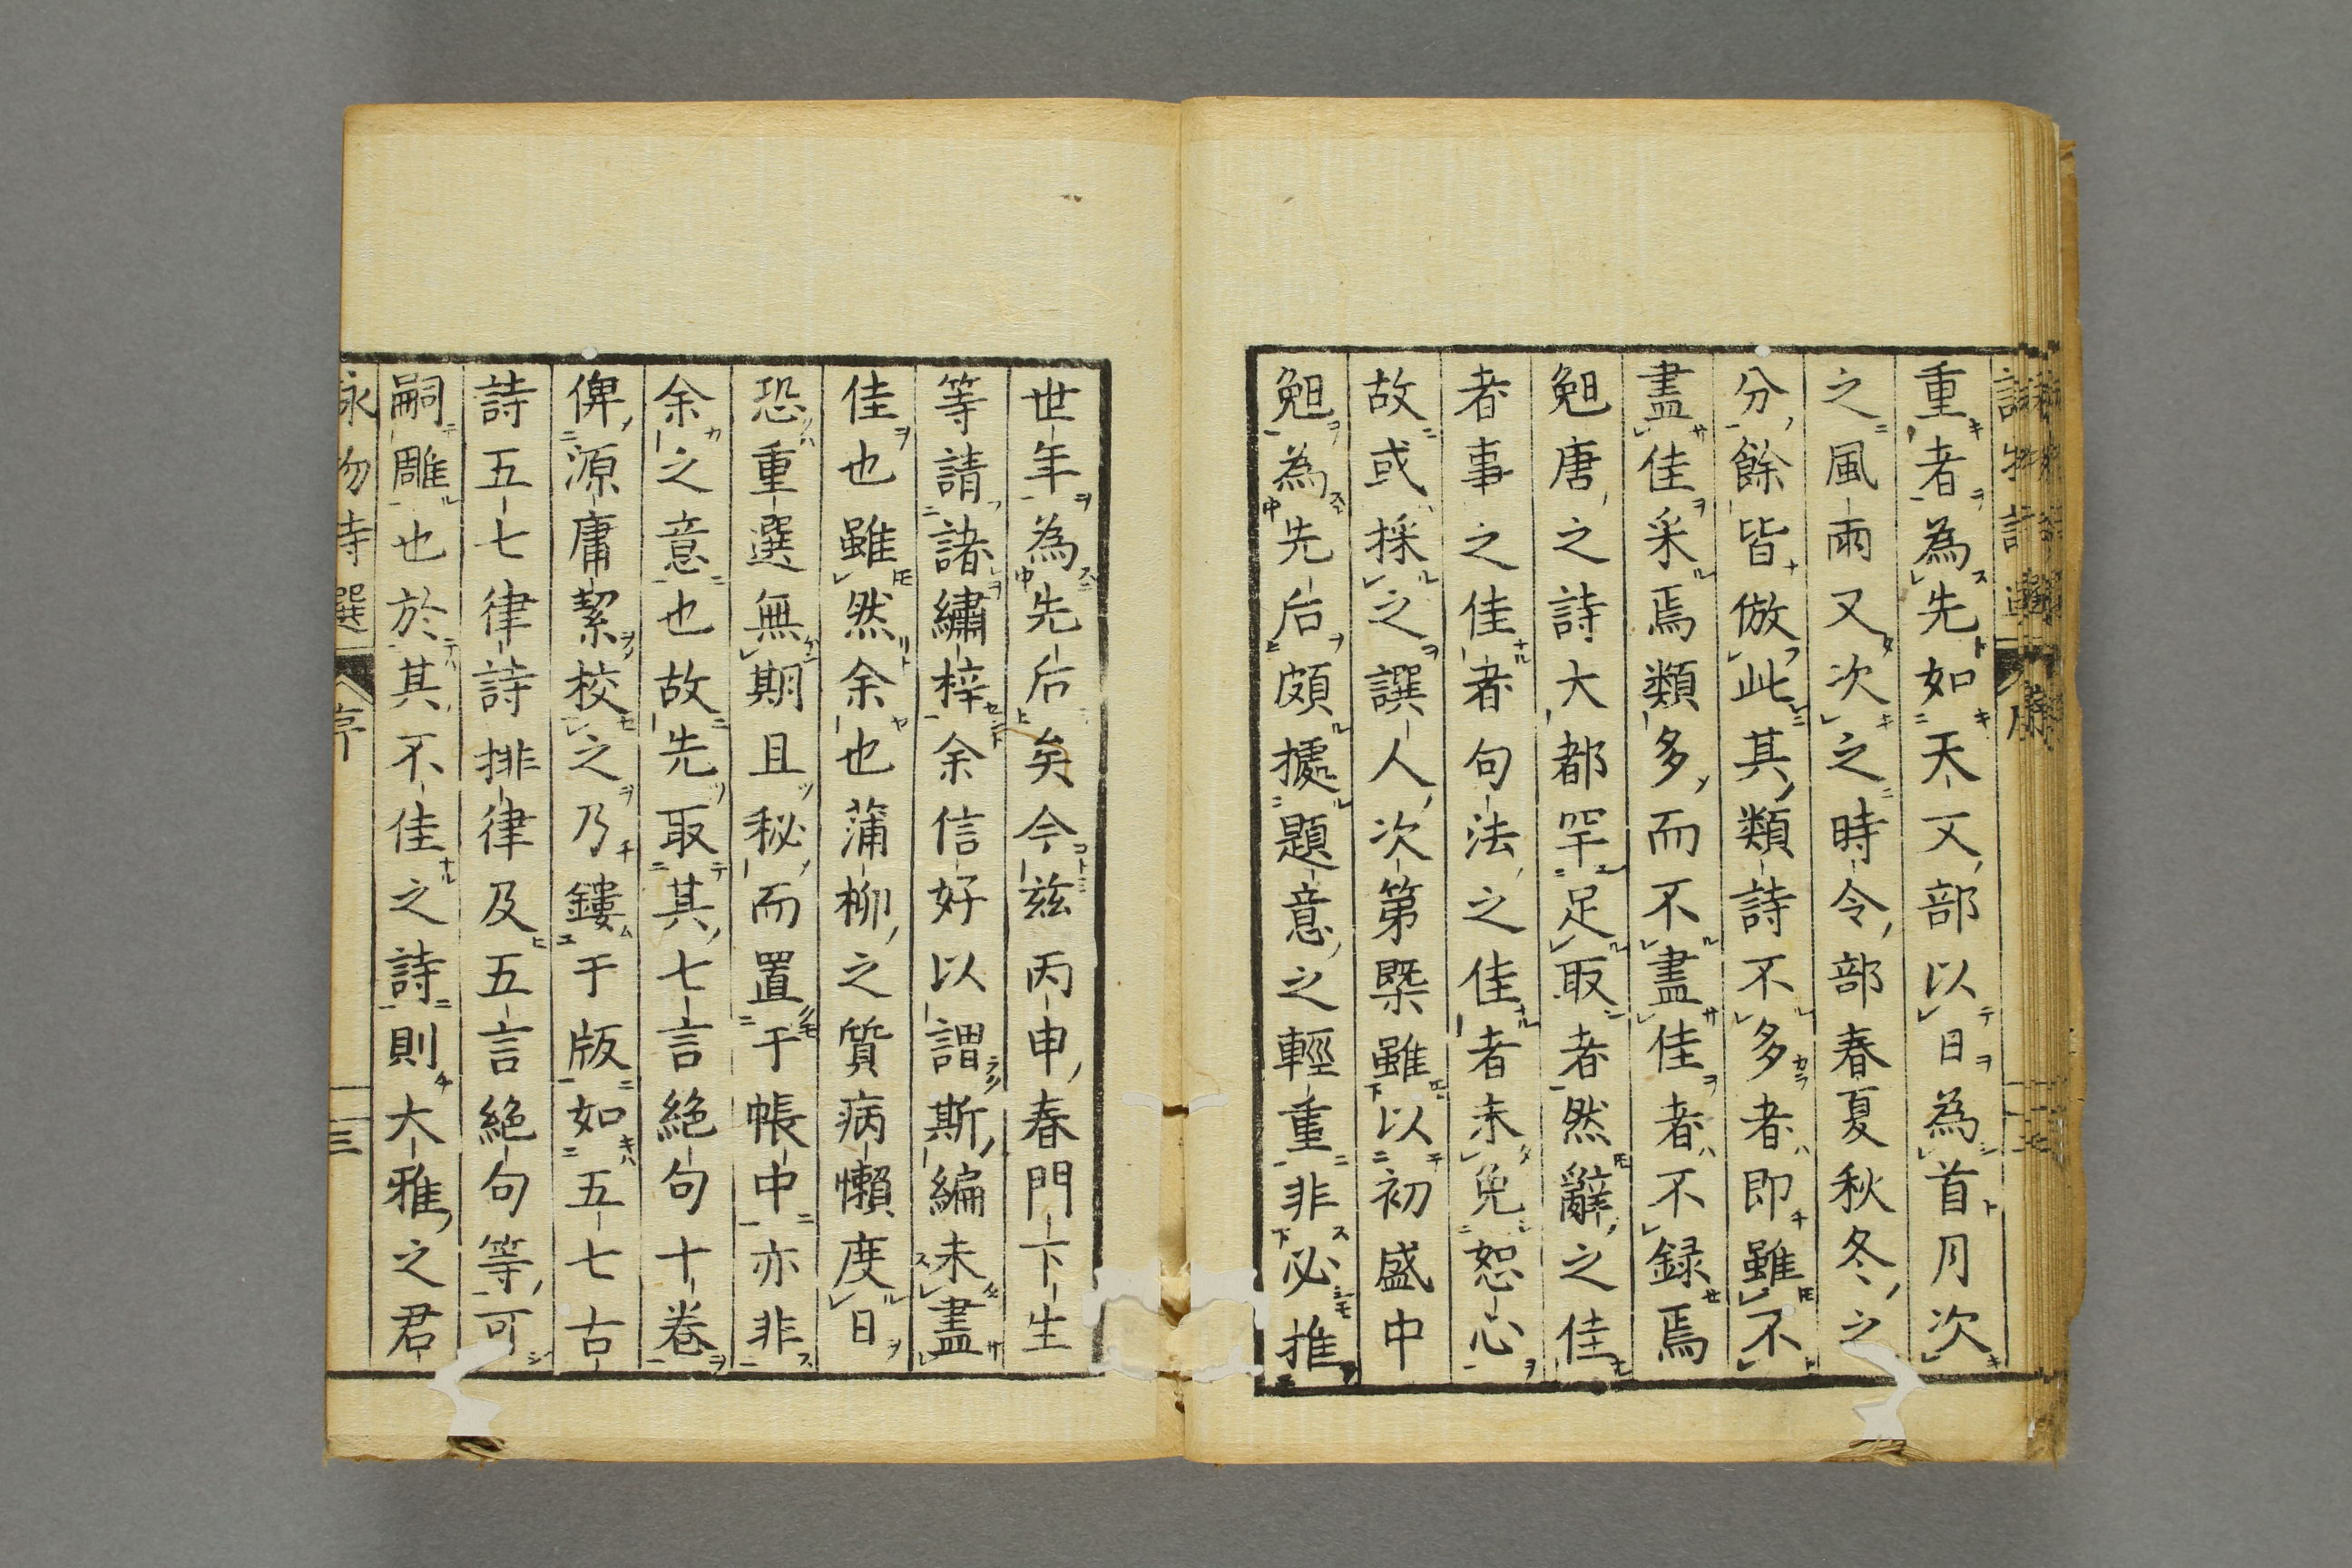 重者為先如天文部以日為首月次
之風雨又次之時令部春夏秋冬之
分餘皆倣此其類詩不多者即雖不
盡佳采焉類多而不盡佳者不録焉
䱇唐之詩大都罕足取者然辭之佳
者事之佳者句法之佳者未免恕心
故或採之譔人次第槩雖以初盛中
䱇為先后頗據題意之輕重非必推
世年為先后矣今茲丙申春門下生
等請諸繡梓余信好以謂斯編未盡
佳也雖然余也蒲柳之質病懶度日
恐重選無期且秘而置于帳中亦非
余之意也故先取其七言絶句十卷
俾源庸絜校之乃鏤于版如五七古
詩五七律詩排律及五言絶句等可
嗣雕也於其不佳之詩則大雅之君
詠物詩選 序 三